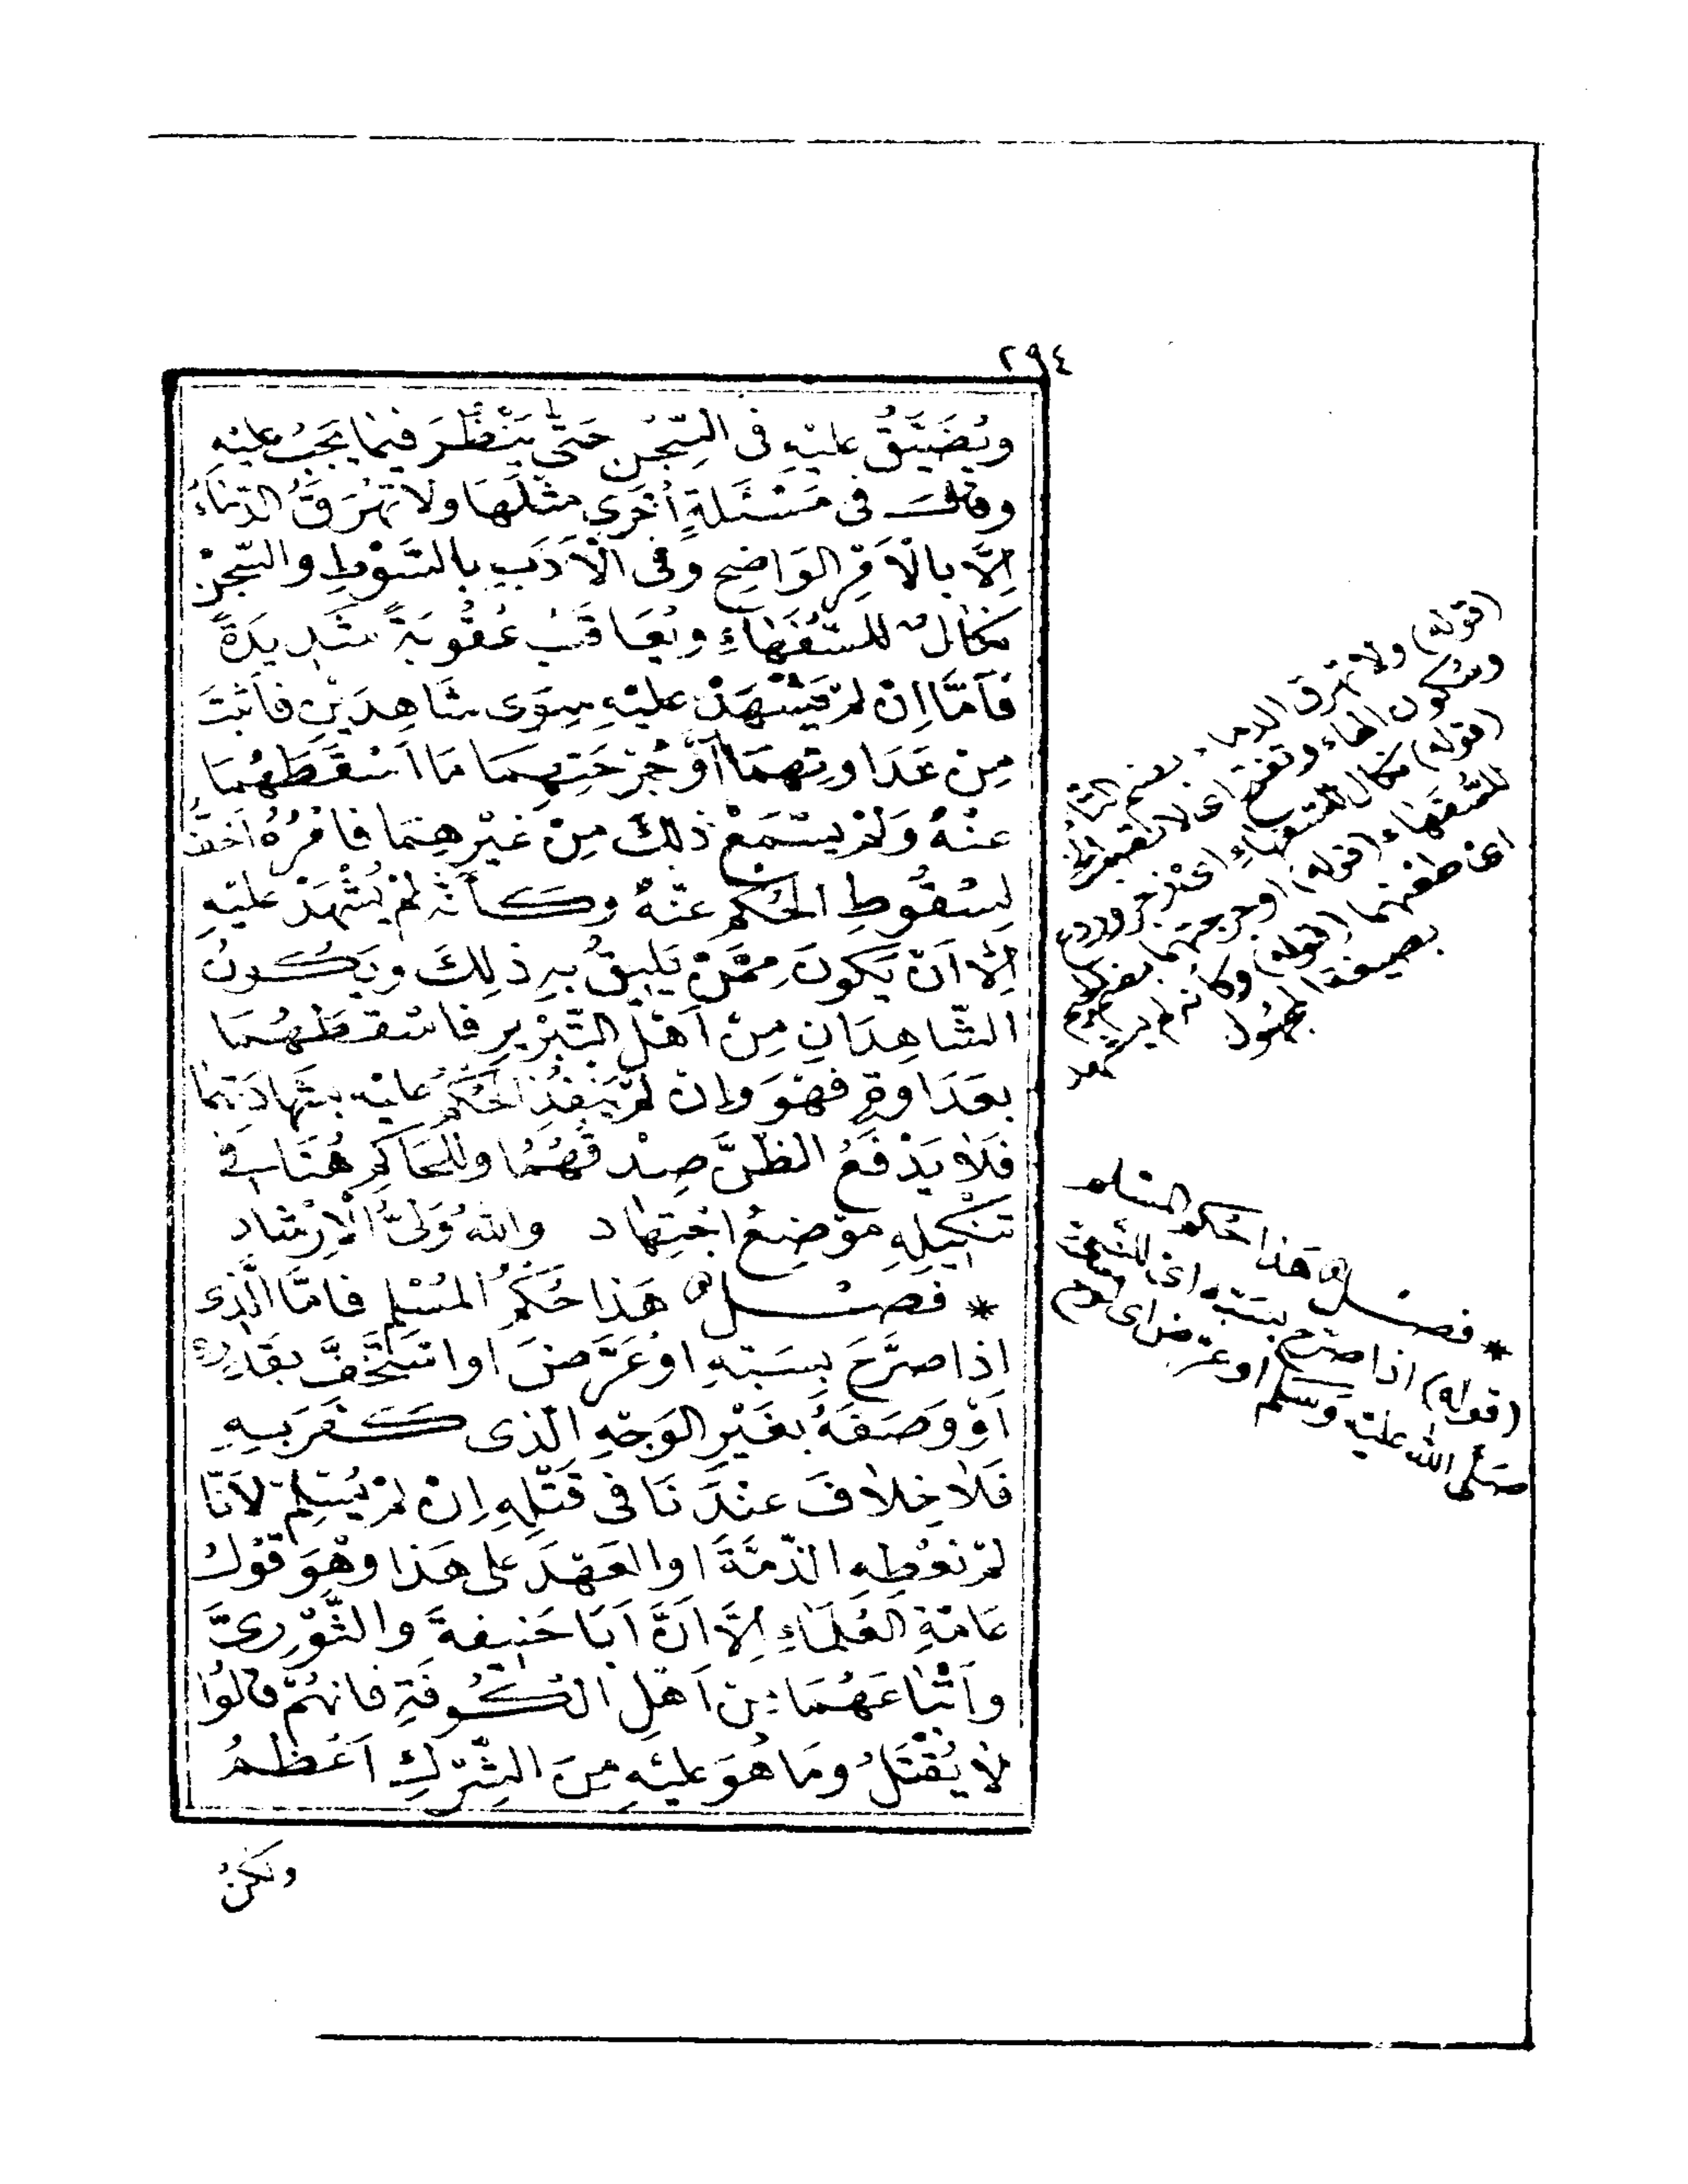 ٢٩٤
وَيُضَيَّقُ عَلَيْهِ فِى السِّجْنِ حَتَّى يُنْظَرَ فِيمَا يَجِبُ عَلَيْهِ
وَقَالَ فِى مَسْئَلَةٍ أُخْرَى مِثْلِهَا وَلَا تُهْرَقُ الدِّمَاءُ
إِلَّا بِالْأَمْرِ الوَاضِحِ وَفِى الْأَدَبِ بِالسَّوْطِ وَالسِّجْنِ
نَكَالٌ لِلسُّفَهَاءِ وَيُعَاقَبُ عُقُوبَةً شَدِيدَةً
فَأَمَّا إِنْ لَمْ يَشْهَدْ عَلَيْهِ سِوَى شَاهِدَيْنِ فَأَثْبَتَ
مِنْ عَدَاوَتِهِمَا أَوْ جُرْحَتِهِمَا مَا أَسْقَطَهُمَا
عَنْهُ وَلَمْ يُسْمَعْ ذٰلِكَ مِنْ غَيْرِهِمَا فَأَمْرُهُ أَخَفُّ
لِسُقُوطِ الْحُكْمِ عَنْهُ وَكَأَنَّهُ لَمْ يُشْهَدْ عَلَيْهِ
إِلَّا أَنْ يَكُونَ مِمَّنْ يَلِيقُ بِهِ ذٰلِكَ وَيَكُونُ
الشَّاهِدَانِ مِنْ أَهْلِ التَّبْرِيزِ فَأَسْقَطَهُمَا
بِعَدَاوَةٍ فَهُوَ وَإِنْ لَمْ يَنْفُذِ الحُكْمُ عَلَيْهِ بِشَهَادَتِهِمَا
فَلَا يَدْفَعُ الظَّنَّ صِدْقُهُمَا وَلِلْحَاكِمِ هُنَا فِى
تَنْكِيلِهِ مَوْضِعُ اجْتِهَادٍ وَاللهُ وَلِىُّ الْإِرْشَادِ
* فَصْلٌ هَذَا حُكْمُ المُسْلِمِ فَأَمَّا الَّذِى
إِذَا صَرَّحَ بِسَبِّهِ أَوْ عَرَّضَ أَوِ اسْتَخَفَّ بِقَدْرِهِ
أَوْ وَصَفَهُ بِغَيْرِ الوَجْهِ الَّذِى كَفَرَ بِهِ
فَلَا خِلَافَ عِنْدَنَا فِى قَتْلِهِ إِنْ لَمْ يُسْلِمْ لِأَنَّا
لَمْ نُعْطِهِ الذِّمَّةَ أَوِ العَهْدَ عَلَى هَذَا وَهُوَ قَوْلُ
عَامَّةِ العُلَمَاءِ إِلَّا أَنَّ أَبَا حَنِيفَةَ وَالثَّوْرِىَّ
وَأَتْبَاعَهُمَا مِنْ أَهْلِ الكُوفَةِ فَإِنَّهُمْ قَالُوا
لَا يُقْتَلُ وَمَا هُوَ عَلَيْهِ مِنَ الشِّرْكِ أَعْظَمُ
وَلكِنْ
(قوله) ولا تهرق الدماء بضم التاء
وسكون الهاء وتفتح اى لا
(قوله) نكال للسفهاء
للسفهاء (قوله) او جرحتهما
(قوله) وكأنه لم يشهد
بصيغة المجهول
* فصل هذا حكم المسلم
(قوله) اذا صرح بسبه اى
او عرض اى
صلى الله عليه وسلم